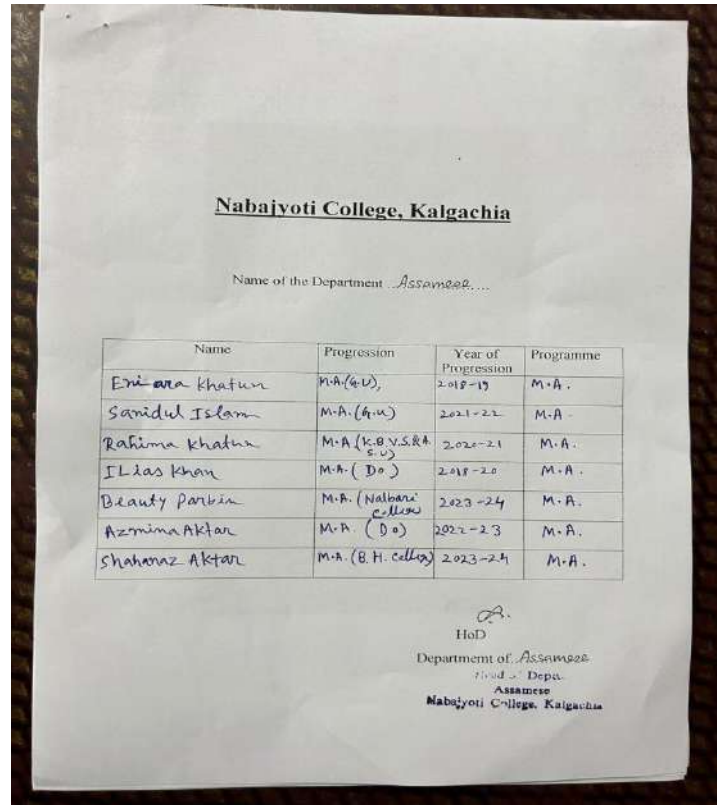 Nabajyoti College, Kalgachia
Name of the Department ..Assamese....
Name Progression Year of Progression Programme
Eni ara Khatun M.A.(G.U), 2018-19 M.A.
Sanidul Islam M.A.(G.U) 2021-22 M.A.
Rahima Khatun M.A (K.B.V.S.&A.S.U) 2020-21 M.A.
ILias Khan M.A. (Do) 2018-20 M.A.
Beauty Parbin M.A. (Nalbari College) 2023-24 M.A.
Azmina Aktar M.A. (Do) 2022-23 M.A.
Shahanaz Aktar M.A. (B.H. College) 2023-24 M.A.
HoD
Departmemt of Assamese
Head of Deptt.
Assamese
Nabajyoti College, Kalgachia